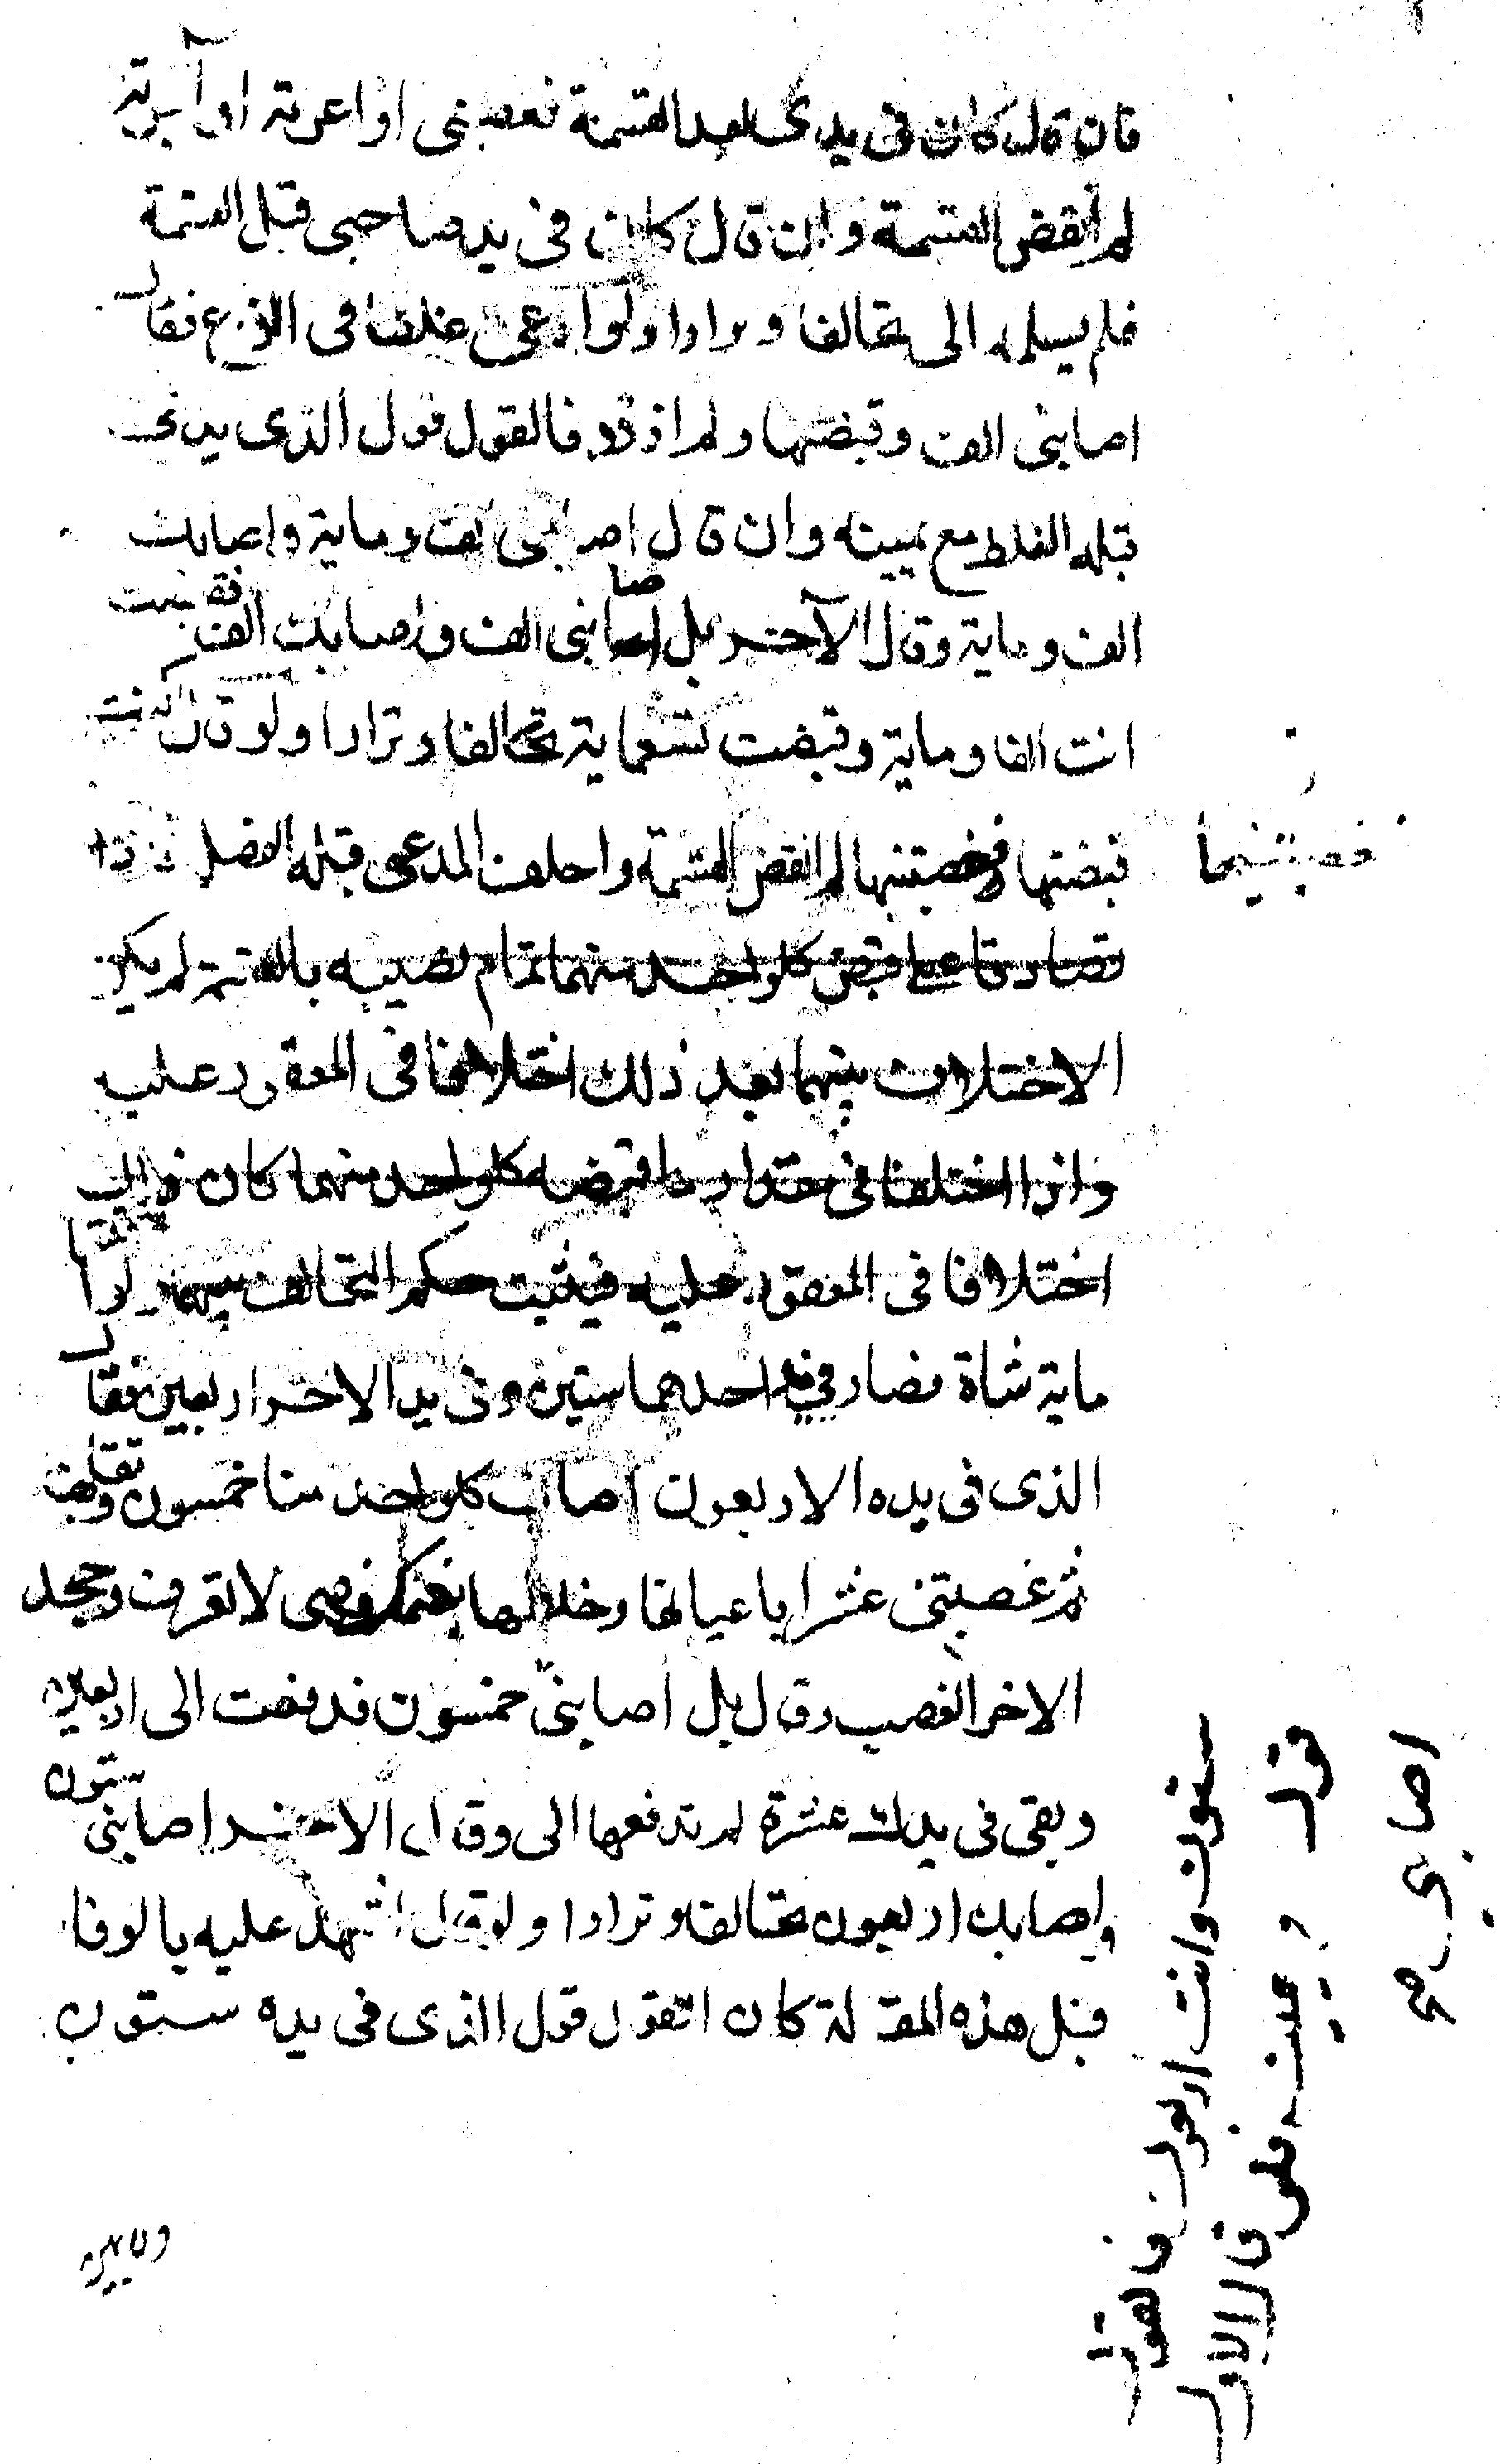 فان قال كان في يدى بعد القسمة فغصبنى او اعرته او آجرته
لم أنقض القسمة وان قال كان في يد صاحبى قبل القسمة
فلم يسلمه الى تحالفا وترادا ولو ادعى غلطا فى الذرع فقال
اصابنى الف وقبضتها ولم ازدد فالقول قول الذى يدعى
قبله الغلط مع يمينه وان قال اصابنى الف وماية واصابك
الف وماية وقال الآخر بل اصابنى الف واصابك الف فقبضت
انت الفا وماية وقبضت تسعماية تحالفا وترادا ولو قال كنت
قبضتها فغصبتنيها لم انقض القسمة واحلف المدعى قبله الفضل
فغصبتنيها
تصادقا على قبض كل واحد منهما تمام نصيبه بالقسمة لم يكن
الاختلاف بينهما بعد ذلك اختلافا فى المعقود عليه
واذا اختلفا فى مقدار ما قبضه كل واحد منهما كان ذلك
اختلافا فى المعقود عليه فيثبت حكم التحالف بينهما ولو اقتسما
ماية شاة فصار في يد احدهما ستين وفى يد الاخر اربعين فقال
الذى فى يده الاربعون اصاب كل واحد منا خمسون وتقابضنا
ثم غصبتنى عشرا باعيانها وخلطها بغنمك فهى لا تعرف وجحد
الاخر الغصب وقال بل اصابنى خمسون فدفعت الى اربعين
وبقى فى يدك عشرة لم تدفعها الى وقال الاخر اصابنى ستون
واصابك اربعون تحالفا وترادا ولو قال اشهد عليه بالوفا
قبل هذه المقالة كان القول قول الذى فى يده ستون
ستون وانت اربعون فالقول